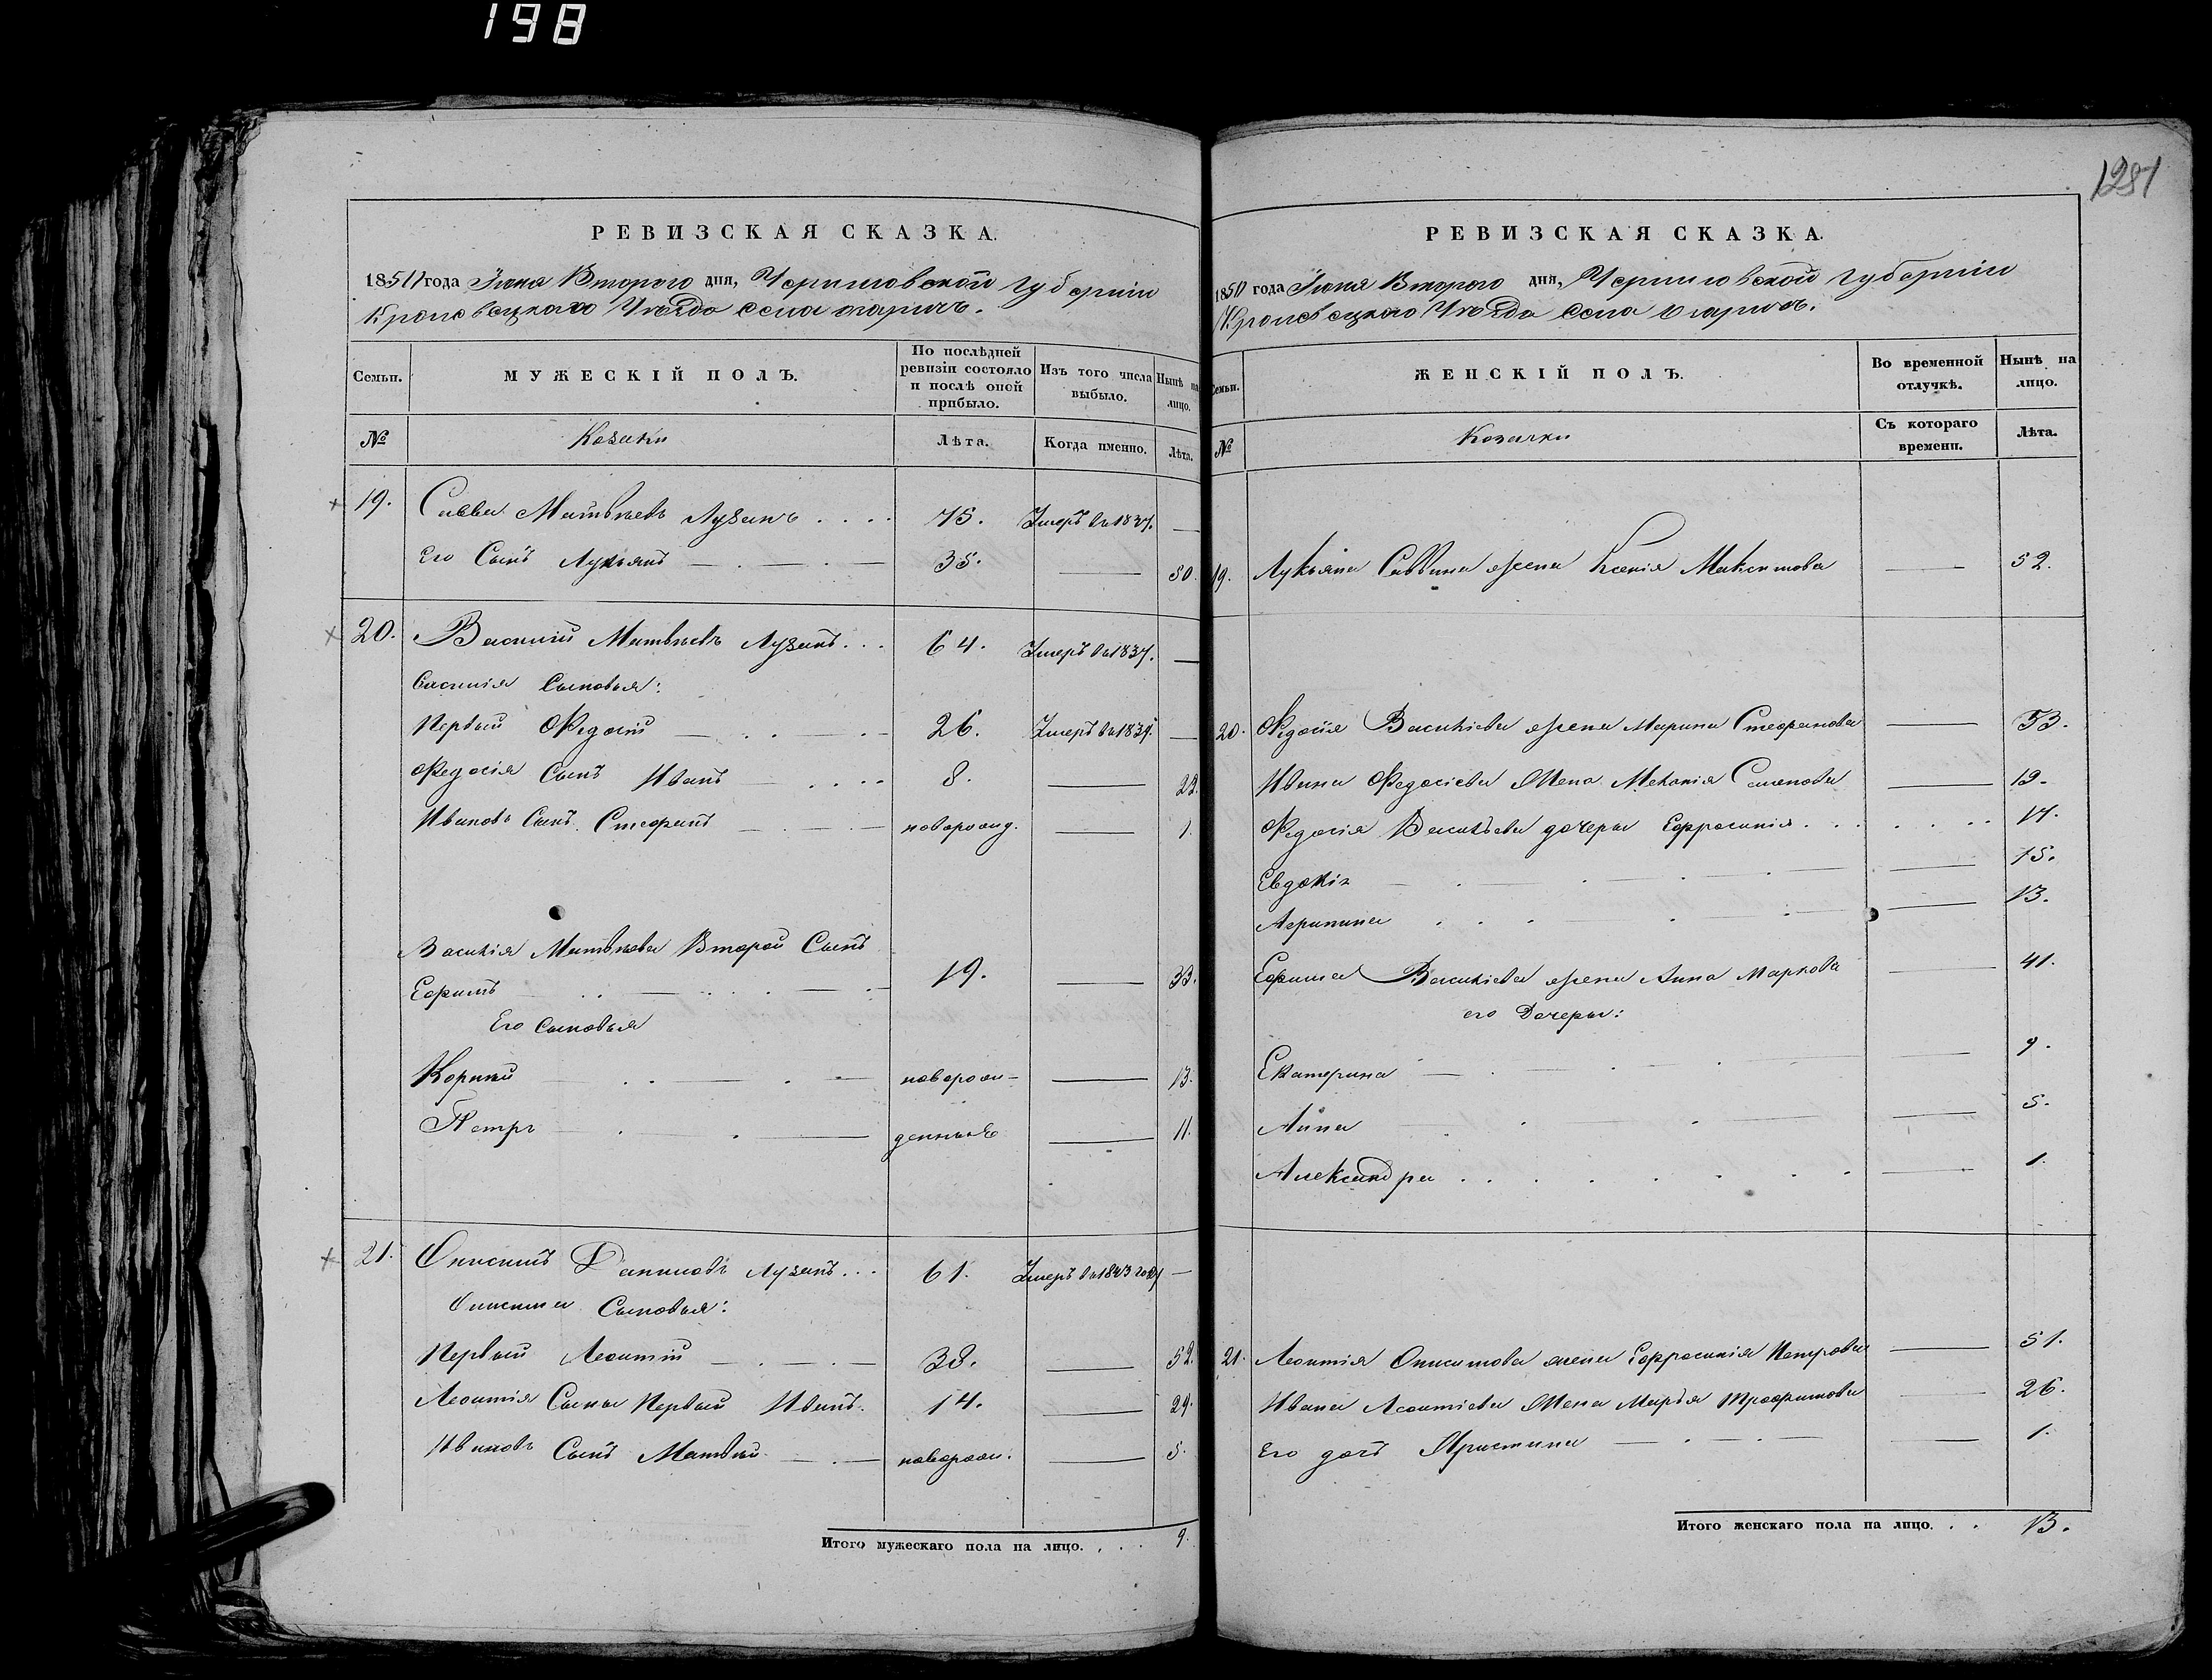 198
1281
РЕВИЗСКАЯ СКАЗКА.
1851 года Іюня Второго дня, Черниговской губерніи
Кролевецкаго Уѣзда села
Семьи.
МУЖЕСКІЙ ПОЛЪ.
По послѣдней ревизіи состояло и послѣ оной прибыло.
Изъ того числа выбыло.
Нынѣ на лицо.
№
Козаки
Лѣта.
Когда именно.
Лѣта.
19. Савва Матвѣевъ Лузанъ . . . . 75. Умеръ въ 1837. —
Его Сынъ Лукьянъ 35. — 50.
20. Василій Матвѣевъ Лузанъ . . . 64. Умеръ въ 1837. —
Василія Сыновья:
Первый Федосій 26. Умеръ въ 1839. —
Федосія Сынъ Иванъ 8. — 22.
Ивановъ Сынъ Стефанъ новорожд. — 1.
Василія Матвѣева Второй Сынъ
Ефимъ 19. — 33.
Его Сыновья
Корнѣй новорож- — 13.
Петръ денные — 11.
21. Онисимъ Даниловъ Лузанъ . . . 61. Умеръ въ 1843 году —
Онисима Сыновья:
Первый Леонтій 38. — 52.
Леонтія Сыны Первый Иванъ. 14. — 29.
Ивановъ Сынъ Матвѣй новорож. — 5.
Итого мужескаго пола на лицо. . . . 9.
РЕВИЗСКАЯ СКАЗКА.
1851 года Іюня Второго дня, Черниговской губерніи
Кролевецкаго Уѣзда села
Семьи.
ЖЕНСКІЙ ПОЛЪ.
Во временной отлучкѣ.
Нынѣ на лицо.
№
Козачки
Съ котораго времени.
Лѣта.
19. Лукьяна Саввина жена Ксенія Максимова — 52.
20. Федосія Василіева жена Марина Стефанова — 53.
Ивана Федосіева Жена Меланія Семенова — 19.
Федосія Васильева дочеры Ефросинія . . . 17.
Евдокія — 15.
Агрипина — 13.
Ефима Василіева жена Анна Маркова — 41.
его Дочеры:
Екатерина — 9.
Анна — 5.
Александра — 1.
21. Леонтія Онисимова жена Ефросинія Петрова — 51.
Ивана Леонтіева Жена Марья Трофимова — 26.
Его дочь Христина — 1.
Итого женскаго пола на лицо. . . 13.